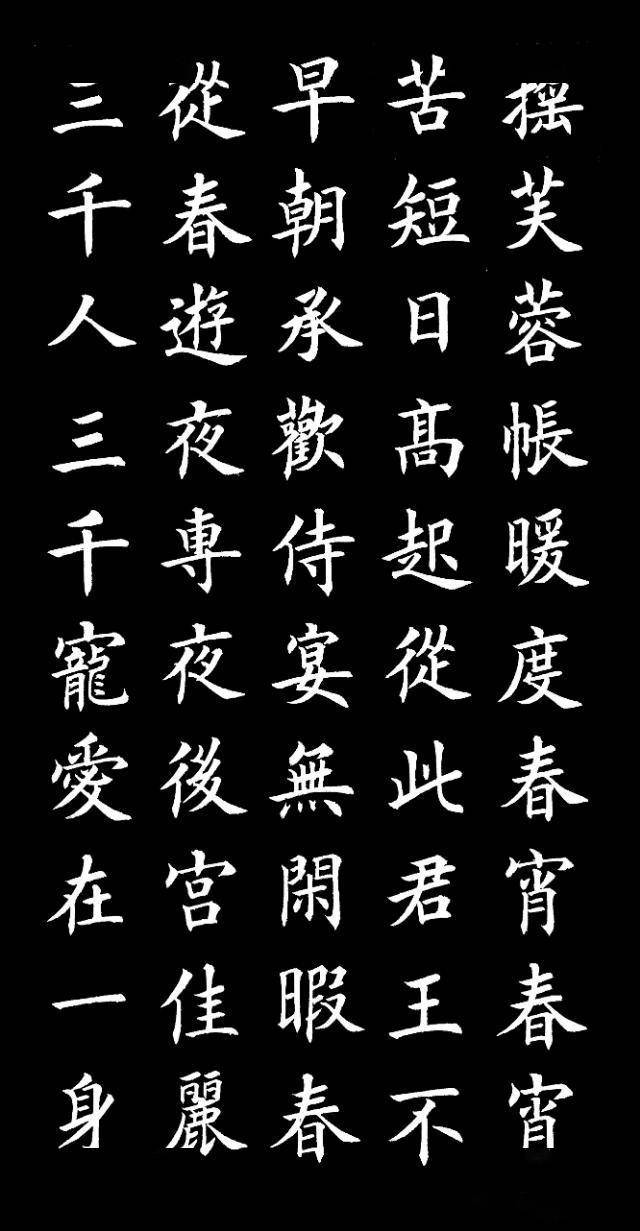 搖芙蓉帳暖度春宵春宵
苦短日髙起從此君王不
早朝承歡侍宴無閑暇春
從春遊夜専夜後宮佳麗
三千人三千寵愛在一身